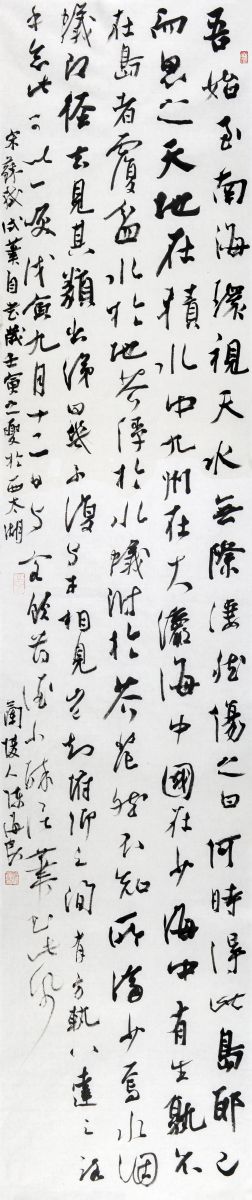 吾始至南海環視天水無際悽然傷之曰何時得此島耶已
而思之天地在積水中九州在大瀛海中國在少海中有生孰不
在島者覆盆水於地芥浮於水蟻附於芥茫然不知所濟少焉水涸
蟻即徑去見其類出涕曰幾不復與子相見豈知俯仰之間有方軌八達之路
乎念此可以一笑戊寅九月十二日與客飲薄酒小醉信筆書此紙
宋蘇軾試筆自書歲壬寅之夏於西太湖
蘭陵人陳海良